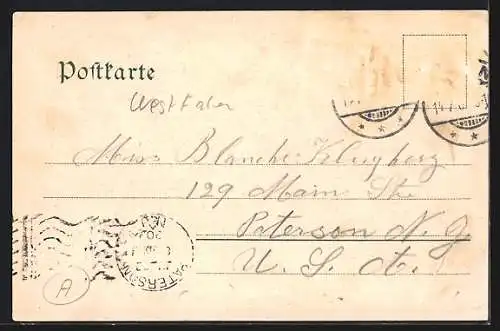 Postkarte
Westfalen
Miss Blanche Klugherz
129 Main Str.
Paterson N. J.
U. S. A.
14.7.0
PATERSON
A